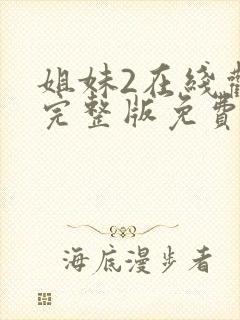 姐妹2在线
完整版免費
海底漫步者